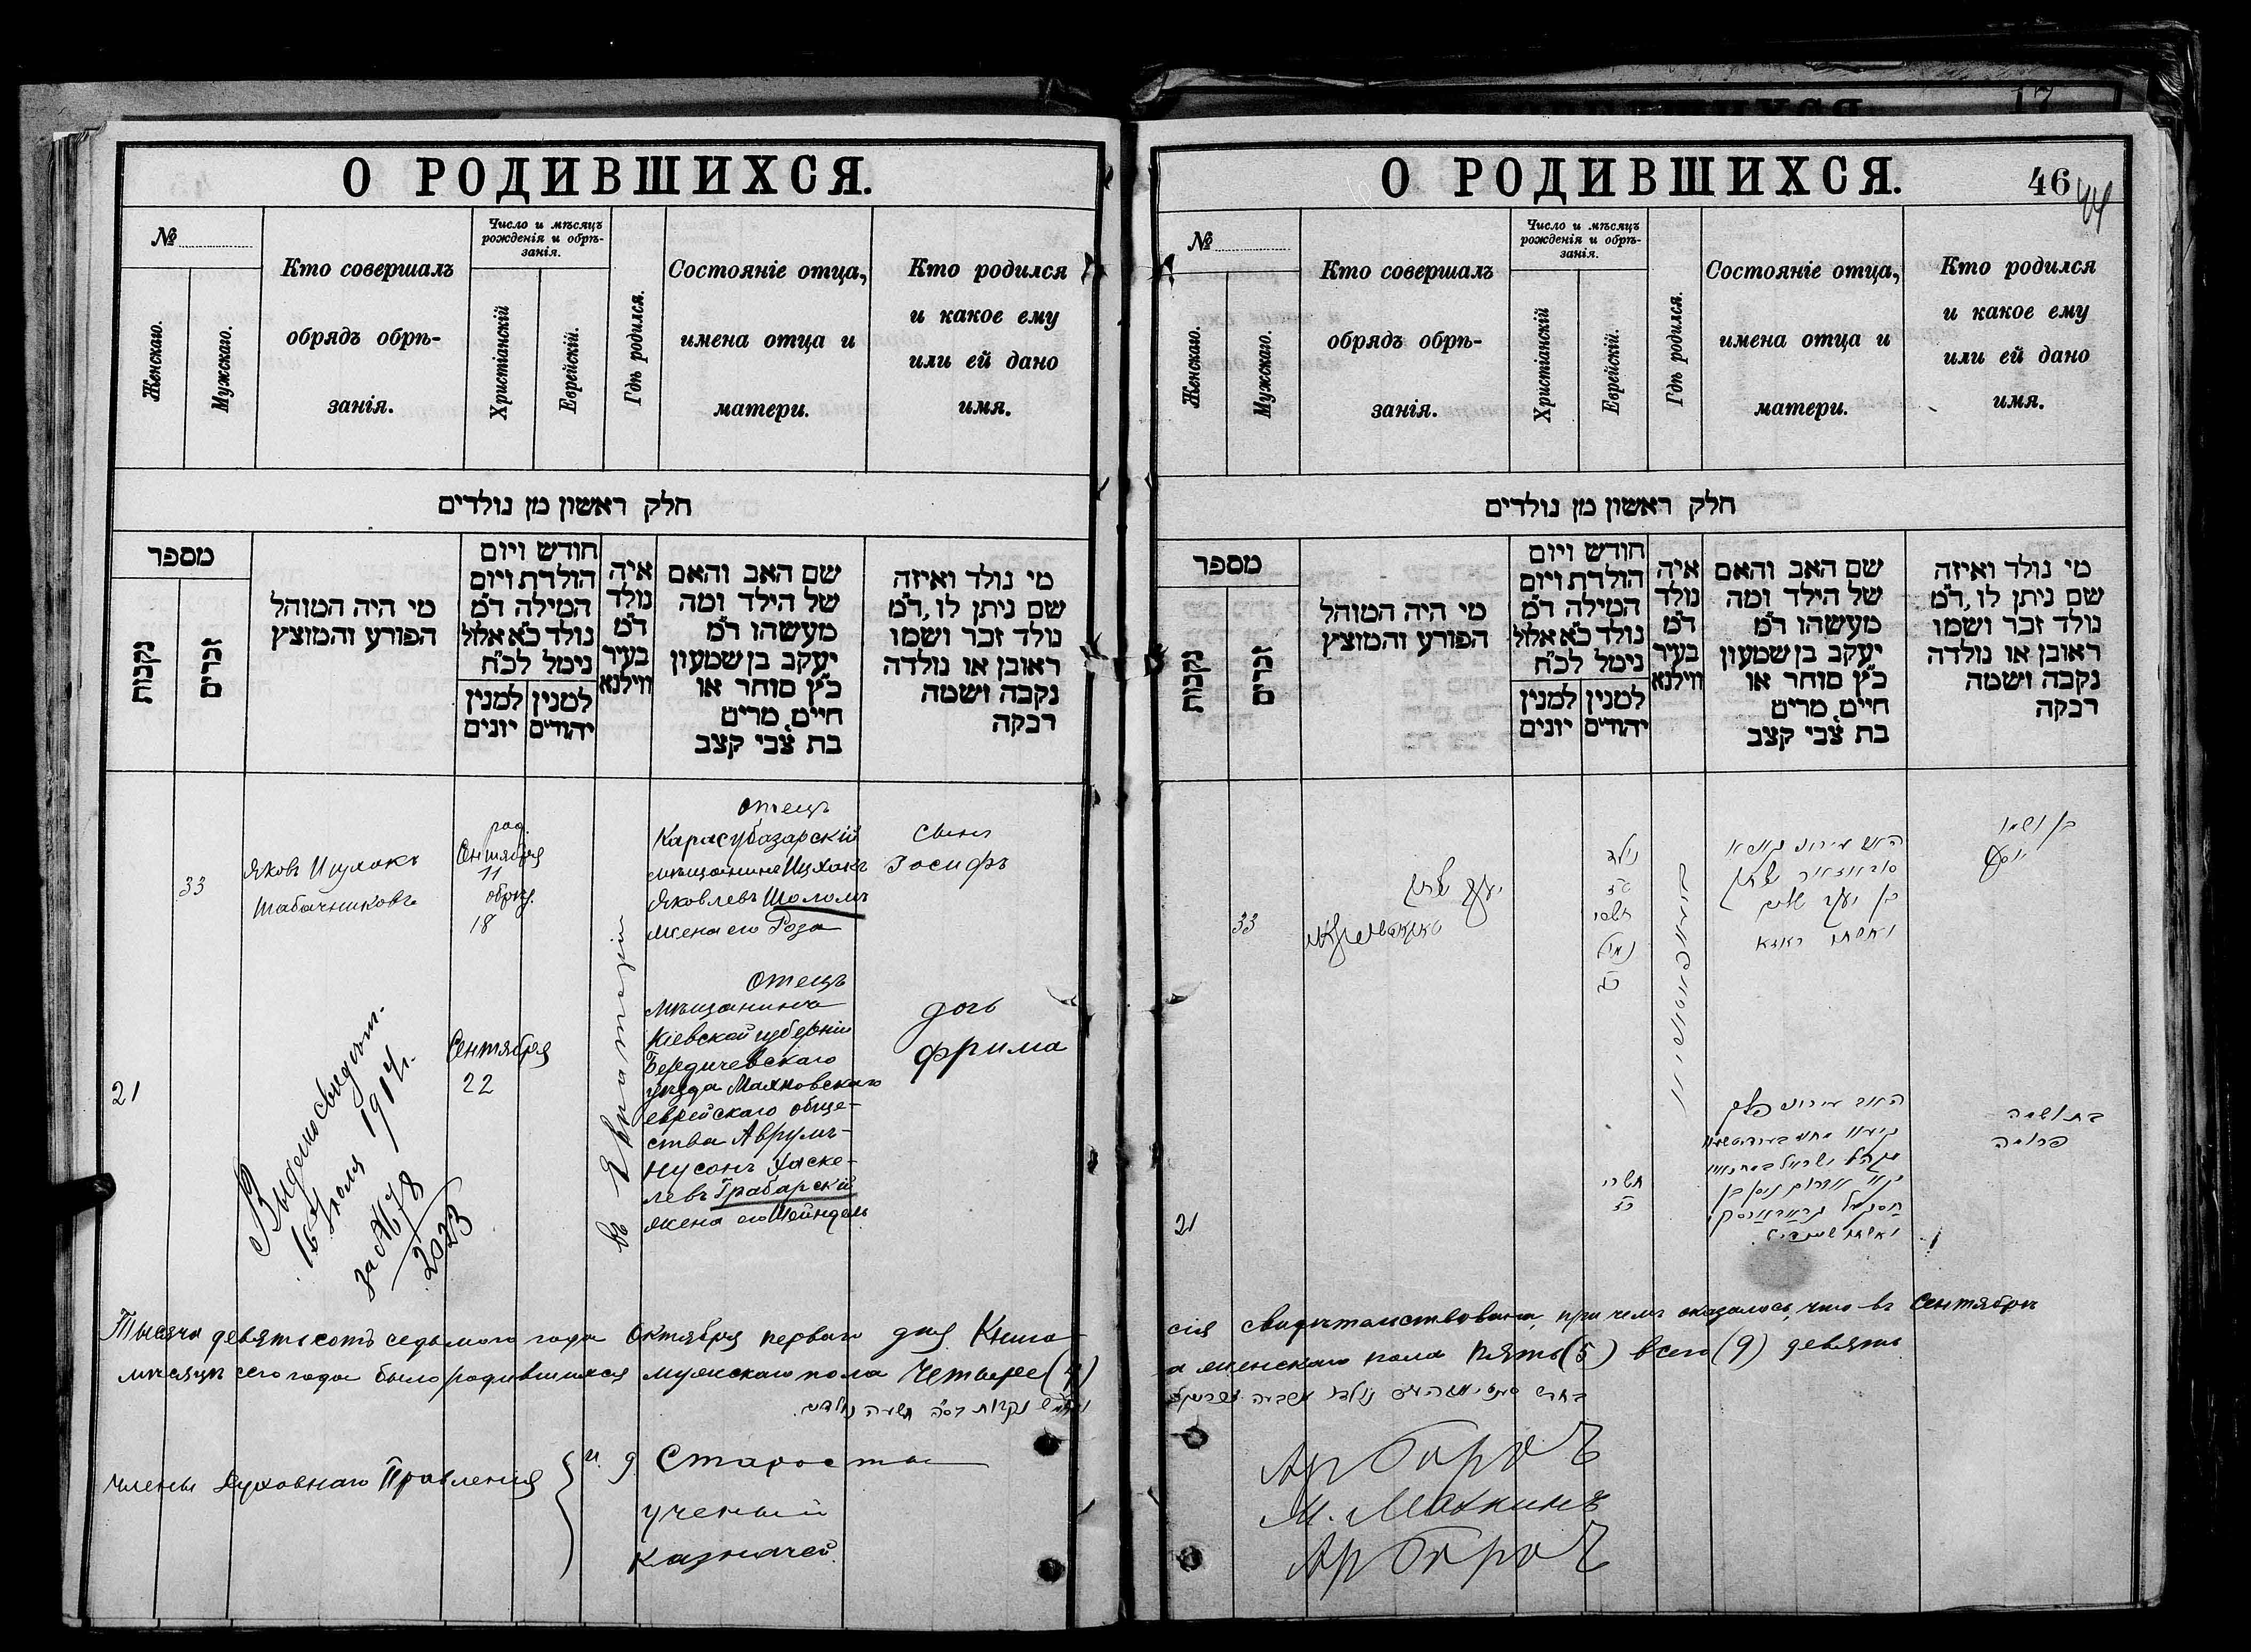 О РОДИВШИХСЯ.
№
Женскаго.
Мужскаго.
Кто совершалъ
обрядъ обрѣ-
занія.
Число и мѣсяцъ
рожденія и обрѣ-
занія.
Христіанскій
Еврейскій.
Гдѣ родился.
Состояніе отца,
имена отца и
матери.
Кто родился
и какое ему
или ей дано
имя.
חלק ראשון מן נולדים
מספר
נקבות
זכרים
מי היה המוהל
הפורע והמוצץ
חודש ויום
הולדת ויום
המילה ד"מ
נולד כ"א אלול
נימל לכ"ח
למנין יונים
למנין יהודים
איה
נולד
ד"מ
בעיר
ווילנא
שם האב והאם
של הילד ומה
מעשהו ד"מ
יעקב בן שמעון
כ"ץ סוחר או
חיים, מרים
בת צבי קצב
מי נולד ואיזה
שם ניתן לו, ד"מ
נולד זכר ושמו
ראובן או נולדה
נקבה ושמה
רבקה
33
Яковъ Ицхокъ
Табачниковъ
род.
Сентября
11
обрѣз.
18
въ Евпаторіи
отецъ
Карасубазарскій
мѣщанинъ Ицхокъ
Яковлевъ Шоломъ
жена его Роза
сынъ
Іосифъ
21
Выдано свидѣт.
16 Іюля 1914 г.
за № 678
2023
Сентября
22
Отецъ
мѣщанинъ
Кіевской губерніи
Бердичевскаго
уѣзда Махновскаго
еврейскаго обще-
ства Аврумъ-
Нусонъ Хаске-
левъ Грабарскій
жена его Шейндель
дочь
Фрима
Тысяча девятьсотъ седьмого года Октября перваго дня Книга
мѣсяцѣ сего года было родившихся мужскаго пола Четыре (4)
נקבות תשעה נולדים
Члены Духовнаго Правленія
и. д. Староста
ученый
казначей.
О РОДИВШИХСЯ.
46
44
№
Женскаго.
Мужскаго.
Кто совершалъ
обрядъ обрѣ-
занія.
Число и мѣсяцъ
рожденія и обрѣ-
занія.
Христіанскій
Еврейскій.
Гдѣ родился.
Состояніе отца,
имена отца и
матери.
Кто родился
и какое ему
или ей дано
имя.
חלק ראשון מן נולדים
מספר
נקבות
זכרים
מי היה המוהל
הפורע והמוצץ
חודש ויום
הולדת ויום
המילה ד"מ
נולד כ"א אלול
נימל לכ"ח
למנין יונים
למנין יהודים
איה
נולד
ד"מ
בעיר
ווילנא
שם האב והאם
של הילד ומה
מעשהו ד"מ
יעקב בן שמעון
כ"ץ סוחר או
חיים, מרים
בת צבי קצב
מי נולד ואיזה
שם ניתן לו, ד"מ
נולד זכר ושמו
ראובן או נולדה
נקבה ושמה
רבקה
33
יעקב יצחק
נולד
תשרי
נמול
בן יעקב שלום
ואשתו ראזא
בן ושמו
יוסף
21
תשרי
בת ושמה
פרומה
сія свидѣтельствована, при чемъ оказалось, что въ Сентябрѣ
а женскаго пола Пять (5) всего (9) девять
М. Махкинъ